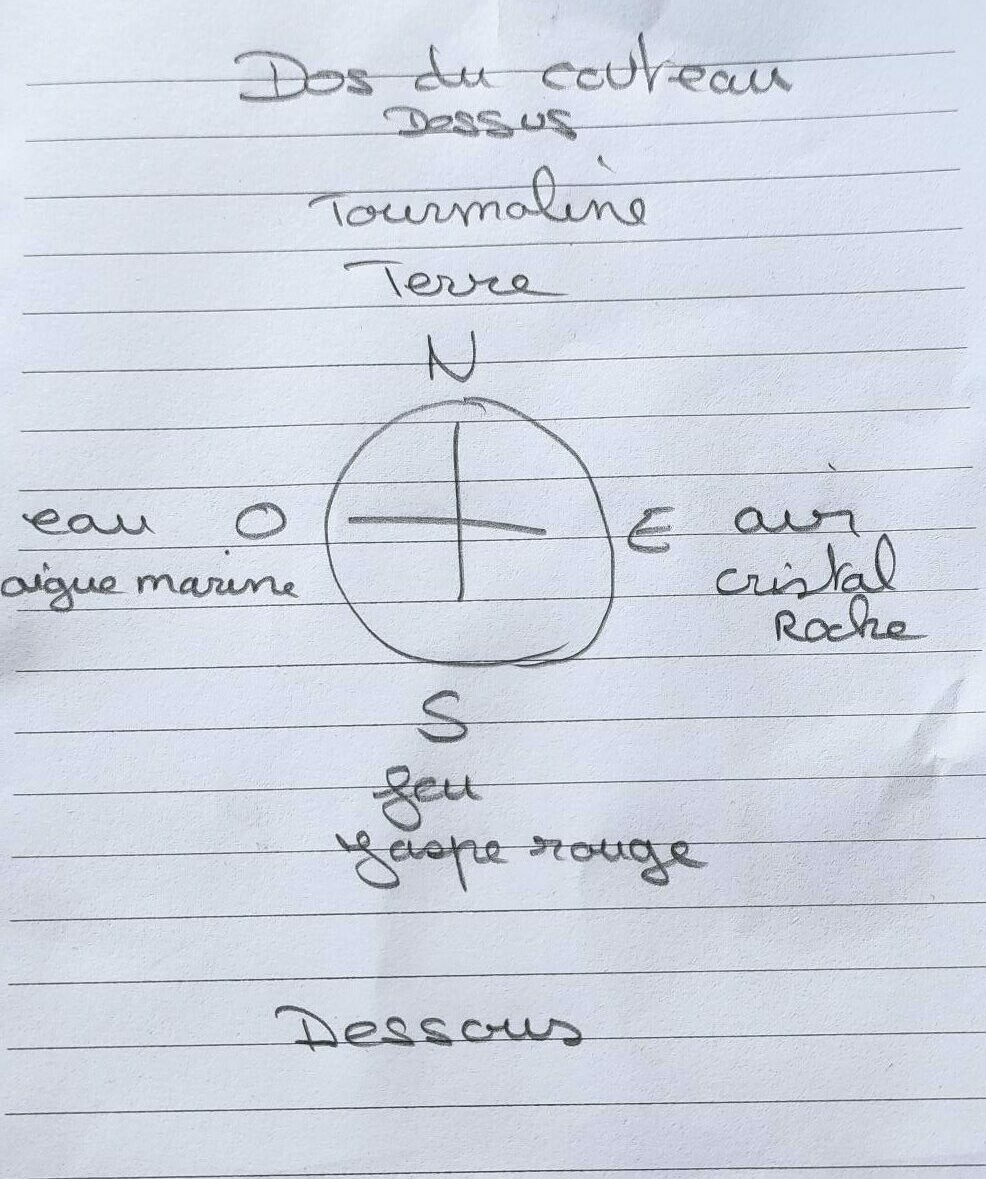 Dos du couteau
Dessus
Tourmaline
Terre
N
eau O
aigue marine
E air
cristal
Roche
S
feu
Jaspe rouge
Dessous